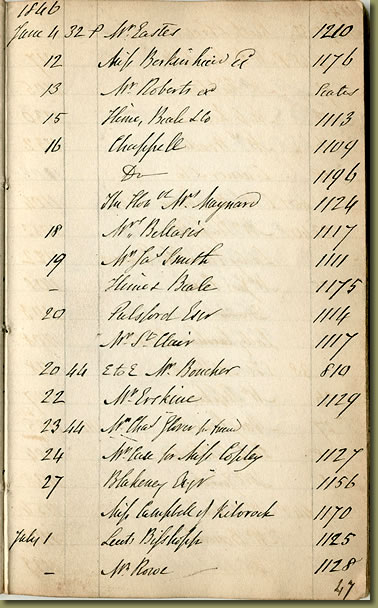 1846
June 4 32 P Mr Eastes 1210
12 Miss Berkinhead 1176
13 Mr Roberts
15 Heine, Beale & Co 1113
16 Chappell 1109
Do 1196
The Honble Mrs Maynard 1124
18 Mrs Bellasis 1117
19 Mr Jas Smith 1111
– Heine & Beale 1175
20 Pulsford Esqr 1114
Mr St Clair 1117
20 44 E to E Mr Boucher 810
22 Mr Erskine 1129
23 44 Mr Chas Glover
24 Mr Cale for Miss Copley 1127
27 Blakeney Esqr 1156
Miss Campbell of Kilvrock 1170
July 1 Leut Bisshopp 1125
– Mr Rowe 1128
47